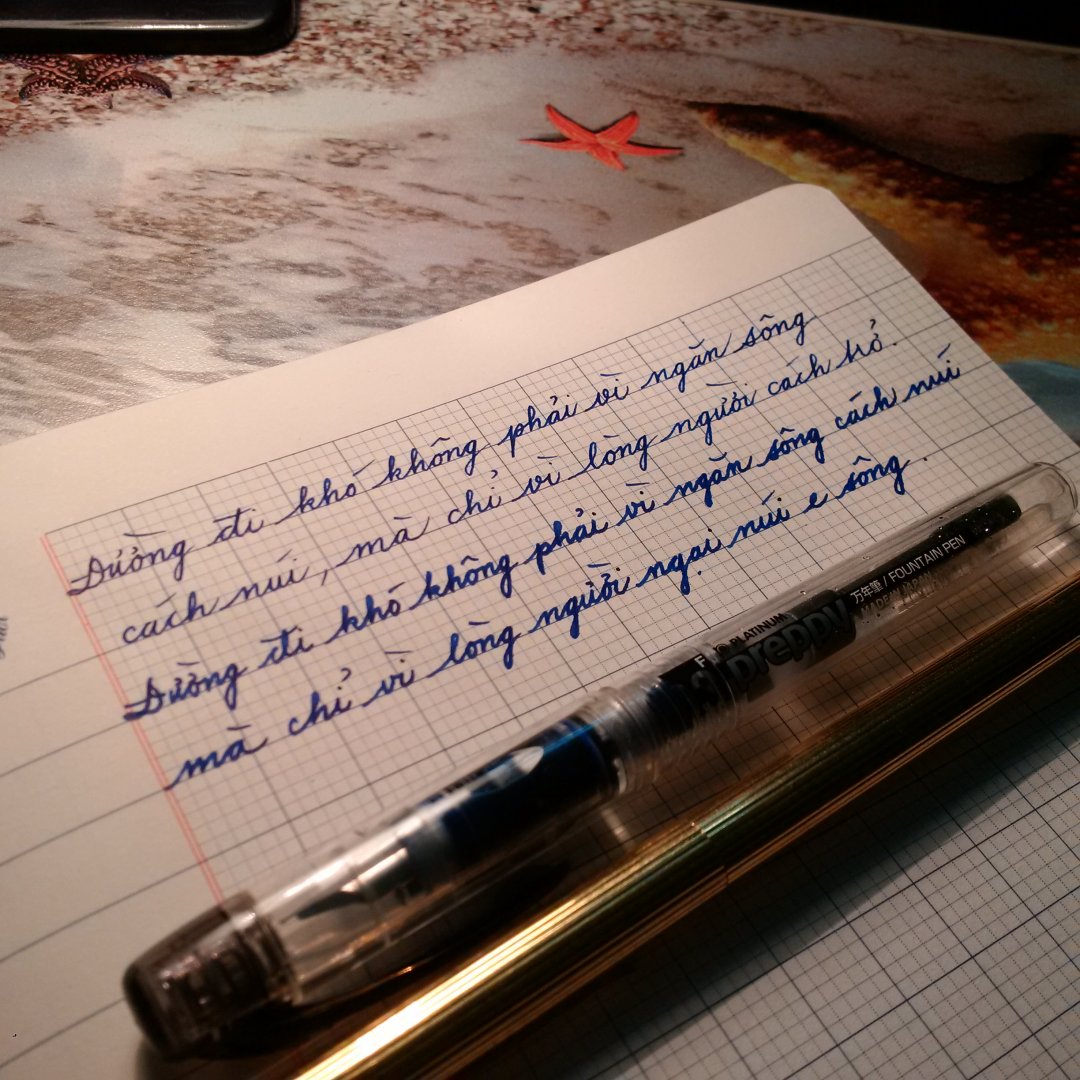 Đường đi khó không phải vì ngăn sông
cách núi, mà chỉ vì lòng người cách trở.
Đường đi khó không phải vì ngăn sông cách núi
mà chỉ vì lòng người ngại núi e sông.
F
PLATINUM
preppy
万年筆 / FOUNTAIN PEN
MADE IN JAPAN